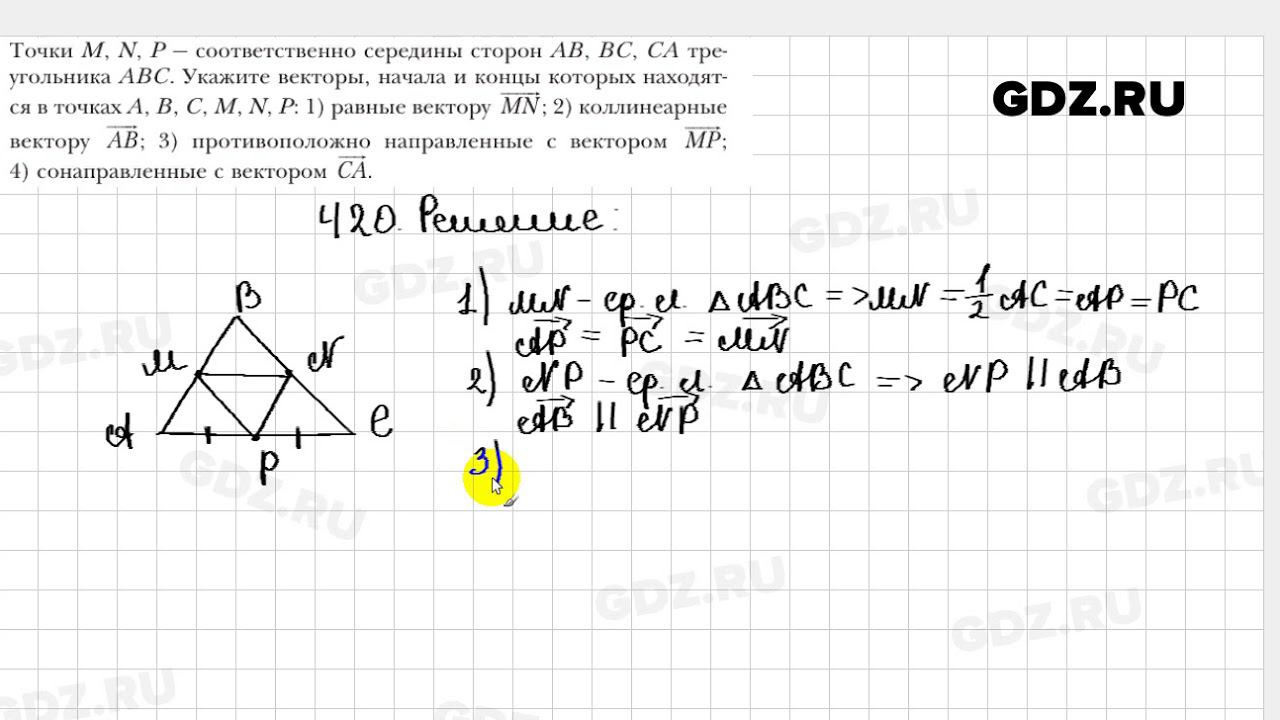 Точки M, N, P — соответственно середины сторон AB, BC, CA тре-
угольника ABC. Укажите векторы, начала и концы которых находят-
ся в точках A, B, C, M, N, P: 1) равные вектору MN; 2) коллинеарные
вектору AB; 3) противоположно направленные с вектором MP;
4) сонаправленные с вектором CA.
GDZ.RU
420. Решение:
B
M
N
A
C
P
1) MN – ср. л. △ABC => MN = 1/2 AC = AP = PC
AP = PC = MN
2) NP – ср. л. △ABC => NP || AB
AB || NP
3)
GDZ.RU
GDZ.RU
GDZ.RU
GDZ.RU
GDZ.RU
GDZ.RU
GDZ.RU
GDZ.RU
GDZ.RU
GDZ.RU